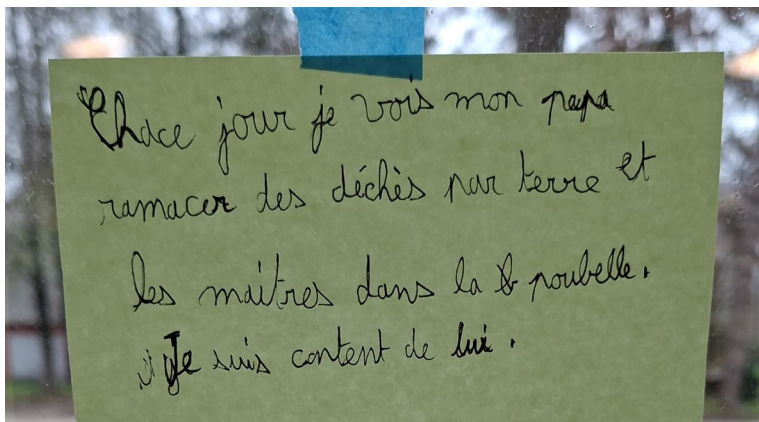 Chace jour je vois mon papa
ramacer des déchès par terre et
les maitres dans la poubelle.
Je suis content de lui.